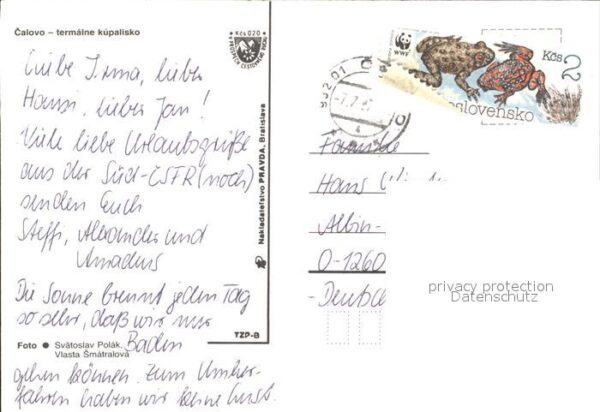 Čalovo – termálne kúpalisko
Kčs 0,20
Liebe Irma, lieber
Hansi, lieber Jan!
Viele liebe Urlaubsgrüße
aus der Süd-ČSFR (noch)
senden Euch
Steffi, Alexander und
Amadeus
Die Sonne brennt jeden Tag
so sehr, daß wir nur
Baden
gehen können. Zum Umher-
fahren haben wir keine Lust.
Foto ● Svätoslav Polák,
Vlasta Šmátralová
TZP-B
Nakladateľstvo PRAVDA, Bratislava
932 01
WWF
Kčs 2
oslovensko
Familie
Hans
Albin-
O-1260
Deutschl
privacy protection
Datenschutz